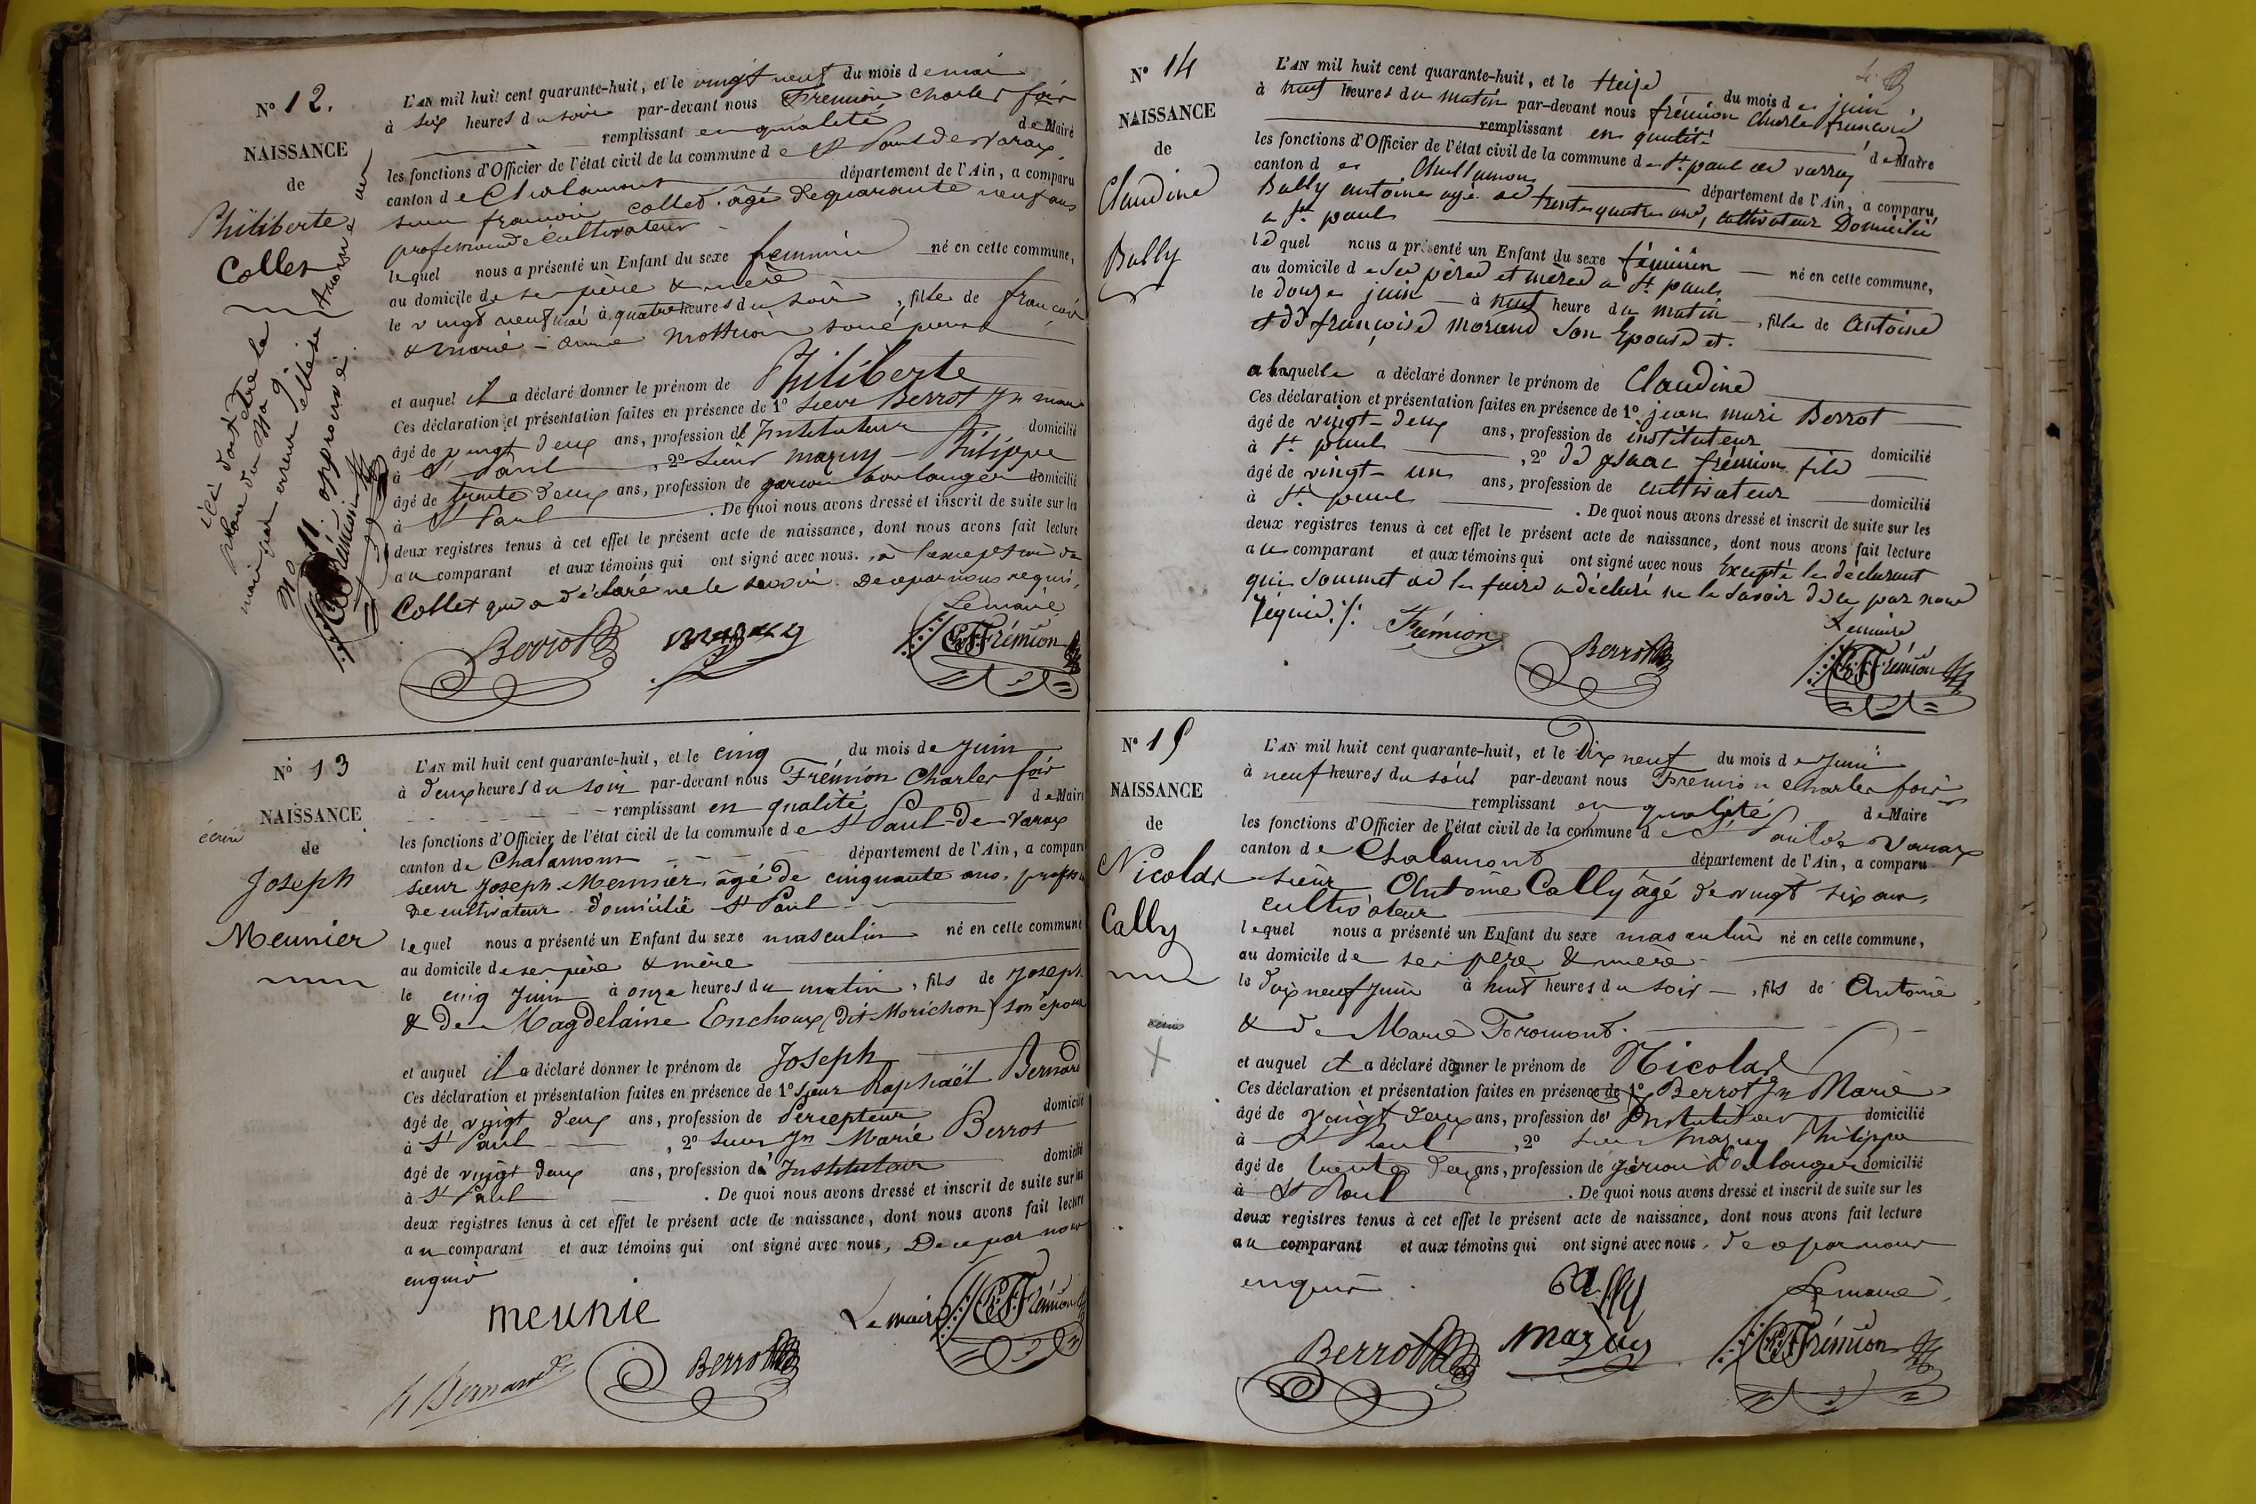 N° 12.
NAISSANCE
de
Philiberte
Collet
L'AN mil huit cent quarante-huit, et le vingt neuf du mois de mai
à six heures du soir par-devant nous Fremion Charles fois
remplissant en qualité de Maire
les fonctions d'Officier de l'état civil de la commune de St Paul de Varax
canton de Chalamont département de l'Ain, a comparu
sieur françois Collet âgé de quarante neuf ans
profession de cultivateur
lequel nous a présenté un Enfant du sexe feminin né en cette commune,
au domicile de ses père & mère
le vingt neuf mai à quatre heures du soir, fille de françois
& marie - anne son épouse
et auquel il a déclaré donner le prénom de Philiberte
Ces déclaration et présentation faites en présence de 1° sieur Berrot Jn marie
âgé de vingt deux ans, profession d' Instituteur domicilié
à St Paul, 2° sieur mazuy Philippe
âgé de trente deux ans, profession de garçon boulanger domicilié
à St Paul. De quoi nous avons dressé et inscrit de suite sur les
deux registres tenus à cet effet le présent acte de naissance, dont nous avons fait lecture
au comparant et aux témoins qui ont signé avec nous. à l'exception de
Collet qui a déclaré ne le savoir. De ce par nous requis,
Le maire
Berrot mazuy Frémion
N° 13
NAISSANCE
de
Joseph
Meunier
L'AN mil huit cent quarante-huit, et le cinq du mois de Juin
à deux heures du soir par-devant nous Frémion Charles fois
remplissant en qualité de Maire
les fonctions d'Officier de l'état civil de la commune de St Paul-de-Varax
canton de Chalamont département de l'Ain, a comparu
sieur Joseph Meunier, âgé de cinquante ans, profession
de cultivateur domicilié St Paul
lequel nous a présenté un Enfant du sexe masculin né en cette commune
au domicile de ses père & mère
le cinq Juin à onze heures du matin, fils de Joseph
& de Magdelaine Enchoux (dit Morichon) son épouse
et auquel il a déclaré donner le prénom de Joseph
Ces déclaration et présentation faites en présence de 1° sieur Raphaël Bernard
âgé de vingt deux ans, profession de Percepteur domicilié
à St Paul, 2° sieur Jn Marie Berrot
âgé de vingt deux ans, profession d' Instituteur domicilié
à St Paul. De quoi nous avons dressé et inscrit de suite sur les
deux registres tenus à cet effet le présent acte de naissance, dont nous avons fait lecture
au comparant et aux témoins qui ont signé avec nous, De ce par nous
enquis
meunie Le maire Frémion
Bernard Berrot
N° 14
NAISSANCE
de
Claudine
Bally
L'AN mil huit cent quarante-huit, et le treize du mois de juin
à neuf heures du matin par-devant nous frémion Charle françois
remplissant en qualité de Maire
les fonctions d'Officier de l'état civil de la commune de St. paul de varax
canton de Challamon département de l'Ain, a comparu
Bally antoine agé de trente quatre ans, cultivateur Domicilié
a St. paul
lequel nous a présenté un Enfant du sexe féminin né en cette commune,
au domicile de ses père et mère a St. paul
le douze juin à neuf heure du matin, fille de Antoine
et de françoise morand son Epouse et.
a laquelle a déclaré donner le prénom de Claudine
Ces déclaration et présentation faites en présence de 1° jean marie Berrot
âgé de vingt-deux ans, profession de instituteur domicilié
à St. paul, 2° de Isaac frémion fils
âgé de vingt-un ans, profession de cultivateur domicilié
à St. paul. De quoi nous avons dressé et inscrit de suite sur les
deux registres tenus à cet effet le présent acte de naissance, dont nous avons fait lecture
au comparant et aux témoins qui ont signé avec nous Excepté le déclarant
qui de le faire a déclaré ne le savoir de ce par nous
réquis
Le maire
Frémion Berrot Frémion
N° 15
NAISSANCE
de
Nicolas
Cally
L'AN mil huit cent quarante-huit, et le Dix neuf du mois de Juin
à neuf heures du soir par-devant nous Fremion Charles fois
remplissant en qualité de Maire
les fonctions d'Officier de l'état civil de la commune de St Paul de Varax
canton de Chalamont département de l'Ain, a comparu
sieur Antoine Cally âgé de vingt six ans,
cultivateur
lequel nous a présenté un Enfant du sexe masculin né en cette commune,
au domicile de ses père & mère
le dix neuf Juin à huit heures du soir, fils de Antoine
& de Marie Foromont
et auquel il a déclaré donner le prénom de Nicolas
Ces déclaration et présentation faites en présence de 1° Berrot Jn Marie
âgé de vingt deux ans, profession d' Instituteur domicilié
à St Paul, 2° sieur mazuy Philippe
âgé de trente deux ans, profession de garçon Boulanger domicilié
à St Paul. De quoi nous avons dressé et inscrit de suite sur les
deux registres tenus à cet effet le présent acte de naissance, dont nous avons fait lecture
au comparant et aux témoins qui ont signé avec nous, de ce par nous
enquis.
Cally Le maire
Berrot mazuy Frémion